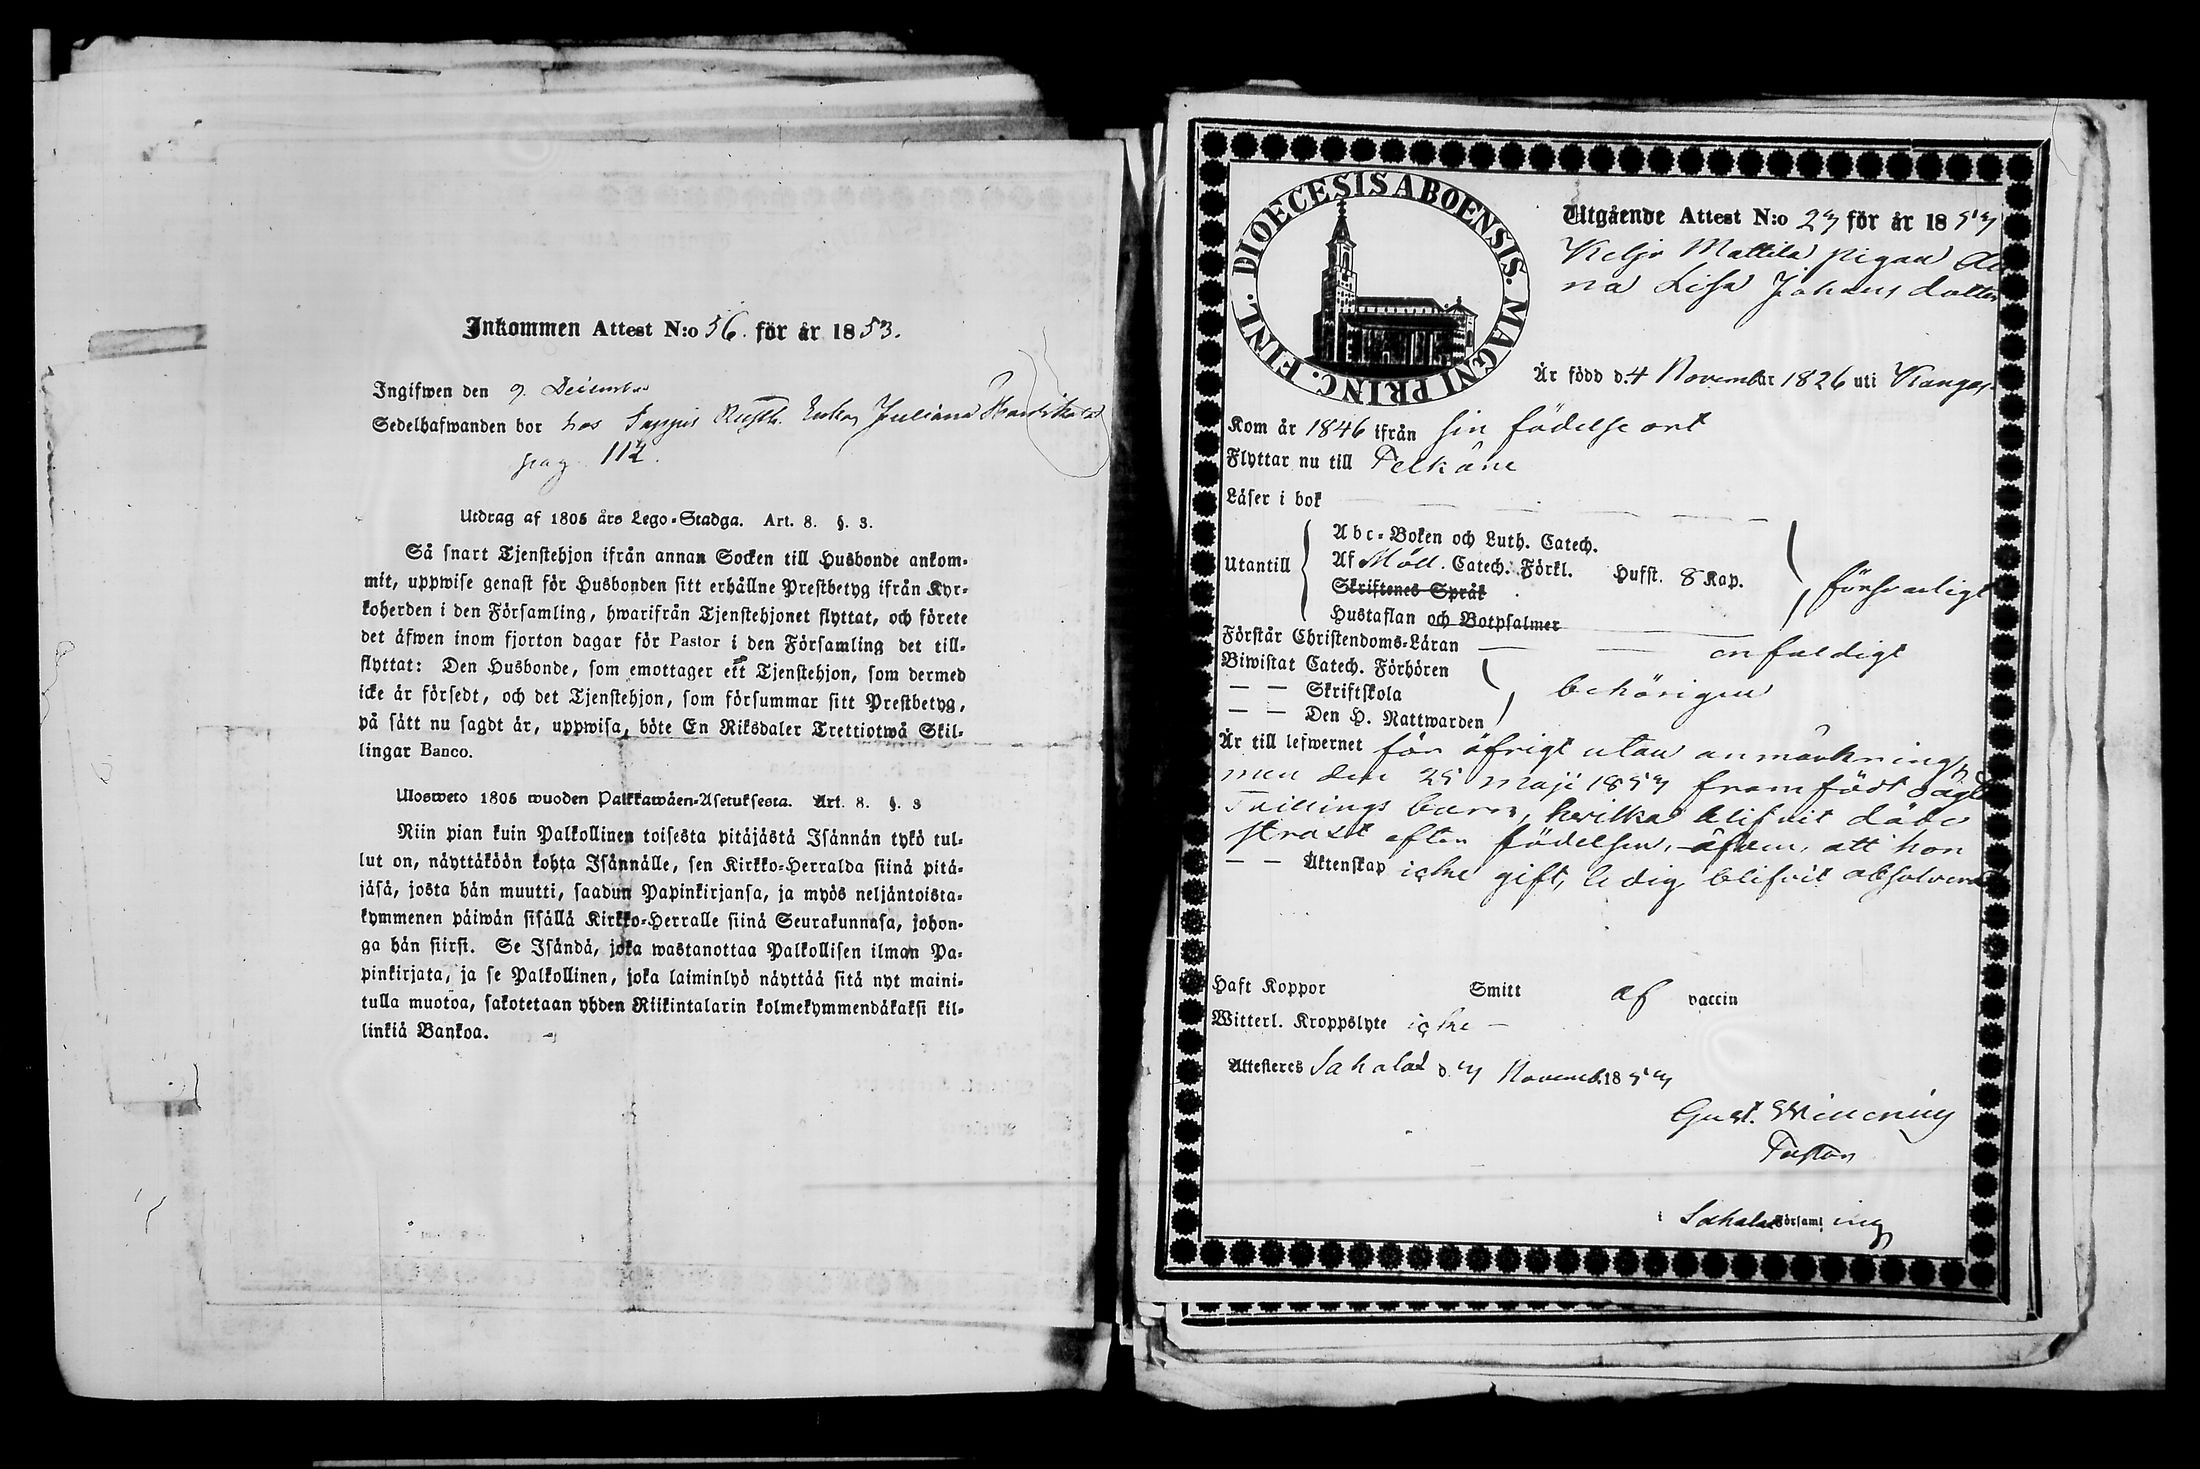 Inkommen Attest N:o 56. för år 1853.
Ingifwen den 9. December
Sedelhafwanden bor hos Seppis Rusth. Enkan Juliana
pag. 112.
Utdrag af 1805 års Lego-Stadga. Art. 8. §. 3.
Så snart Tjenstehjon ifrån annan Socken till Husbonde ankom-
mit, uppwise genast för Husbonden sitt erhållne Prestbetyg ifrån Kyr-
koherden i den Församling, hwarifrån Tjenstehjonet flyttat, och förete
det äfwen inom fjorton dagar för Pastor i den Församling det till-
flyttat: Den Husbonde, som emottager ett Tjenstehjon, som dermed
icke är försedt, och det Tjenstehjon, som försummar sitt Prestbetyg,
på sätt nu sagdt är, uppwisa, böte En Riksdaler Trettiotwå Skil-
lingar Banco.
Ulosweto 1805 wuoden Palkkawäen-Asetuksesta. Art. 8. §. 3
Niin pian kuin Palkollinen toisesta pitäjästä Isännän tykö tul-
lut on, näyttäköön kohta Isännälle, sen Kirkko-Herralda siinä pitä-
jäsä, josta hän muutti, saadun Papinkirjansa, ja myös neljäntoista-
kymmenen päiwän sisällä Kirkko-Herralle siinä Seurakunnasa, johon-
ga hän siirsi. Se Isändä, joka wastanottaa Palkollisen ilman Pa-
pinkirjata, ja se Palkollinen, joka laiminlyö näyttää sitä nyt maini-
tulla muotoa, sakotetaan yhden Riikintalarin kolmekymmendäkaksi kil-
linkiä Bankoa.
FINL. DIOECESIS ABOENSIS. MAGNI PRINC.
Utgående Attest N:o 23 för år 1853
Keljo Mattila pigan An
na Lisa Johans dotter
Är född d. 4 November 1826 uti Kangas.
Kom år 1846 ifrån sin födelse ort
Flyttar nu till Pelkäne
Läser i bok
Utantill
Abc-Boken och Luth. Catech.
Af Möll. Catech. Förkl. Husst. 8 Kap.
Skriftenes Språk
Hustaflan och Botpsalmer
försvarligt
Förstår Christendoms-Läran enfaldigt
Biwistat Catech. Förhören
— — Skriftskola
— — Den H. Nattwarden
behörigen
Är till lefwernet för öfrigt utan anmärkning,
men den 25 Maji 1853 framfödt oägta
Tvillings barn, hvilka blifvit döde
straxt efter födelsen, äfven, att hon
— — Äktenskap icke gift, ledig blifvit absolverad
Haft Koppor Smitt af vaccin
Witterl. Kroppslyte icke —
Attesteres Sahalax d. 3 Novemb. 1853
Gust.
Pastor
i Sahalax Församling